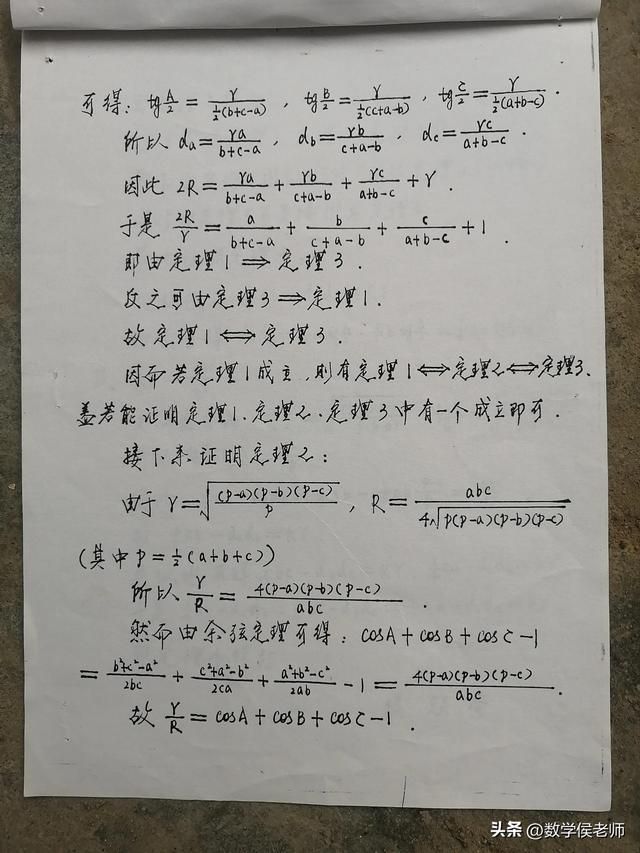 可得: tg A/2 = r/(½(b+c-a)), tg B/2 = r/(½(c+a-b)), tg C/2 = r/(½(a+b-c)).
所以 da = ra/(b+c-a), db = rb/(c+a-b), dc = rc/(a+b-c).
因此 2R = ra/(b+c-a) + rb/(c+a-b) + rc/(a+b-c) + r.
于是 2R/r = a/(b+c-a) + b/(c+a-b) + c/(a+b-c) + 1.
即由定理1 ⟹ 定理3.
反之可由定理3 ⟹ 定理1.
故定理1 ⟺ 定理3.
因而若定理1成立,则有定理1 ⟺ 定理2 ⟺ 定理3.
盖若能证明定理1、定理2、定理3中有一个成立即可.
接下来证明定理2:
由于 r = √((p-a)(p-b)(p-c)/p), R = abc/(4√(p(p-a)(p-b)(p-c)))
(其中 p = ½(a+b+c))
所以 r/R = 4(p-a)(p-b)(p-c)/abc.
然而由余弦定理可得: cosA+cosB+cosC-1
= (b²+c²-a²)/2bc + (c²+a²-b²)/2ca + (a²+b²-c²)/2ab - 1 = 4(p-a)(p-b)(p-c)/abc.
故 r/R = cosA+cosB+cosC-1.
头条 @数学侯老师